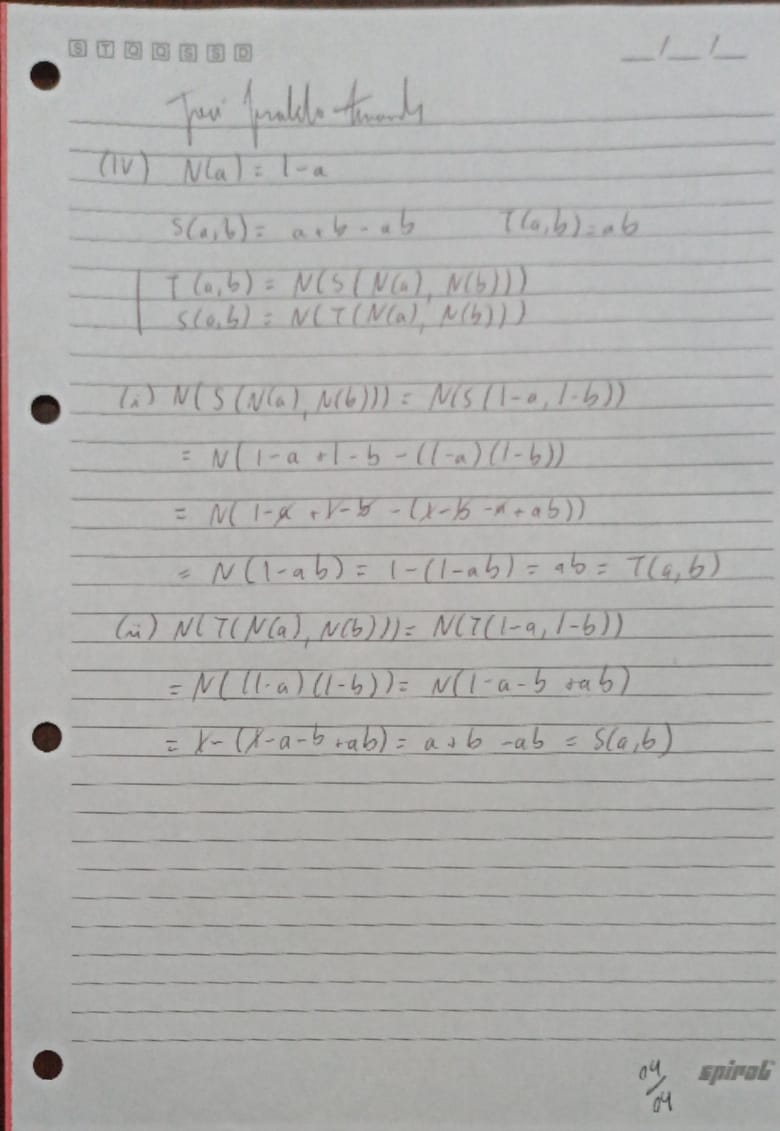 S T Q Q S S D
__/__/__
José Geraldo
(iv) N(a) = 1-a
S(a,b) = a+b-ab T(a,b)=ab
T(a,b) = N(S(N(a), N(b)))
S(a,b) = N(T(N(a), N(b)))
(i) N(S(N(a), N(b))) = N(S(1-a, 1-b))
= N(1-a+1-b-((1-a)(1-b))
= N(1-a+1-b-(1-b-a+ab))
= N(1-ab) = 1-(1-ab) = ab = T(a,b)
(ii) N(T(N(a), N(b))) = N(T(1-a, 1-b))
= N((1-a)(1-b)) = N(1-a-b+ab)
= 1-(1-a-b+ab) = a+b-ab = S(a,b)
04/04
spiral